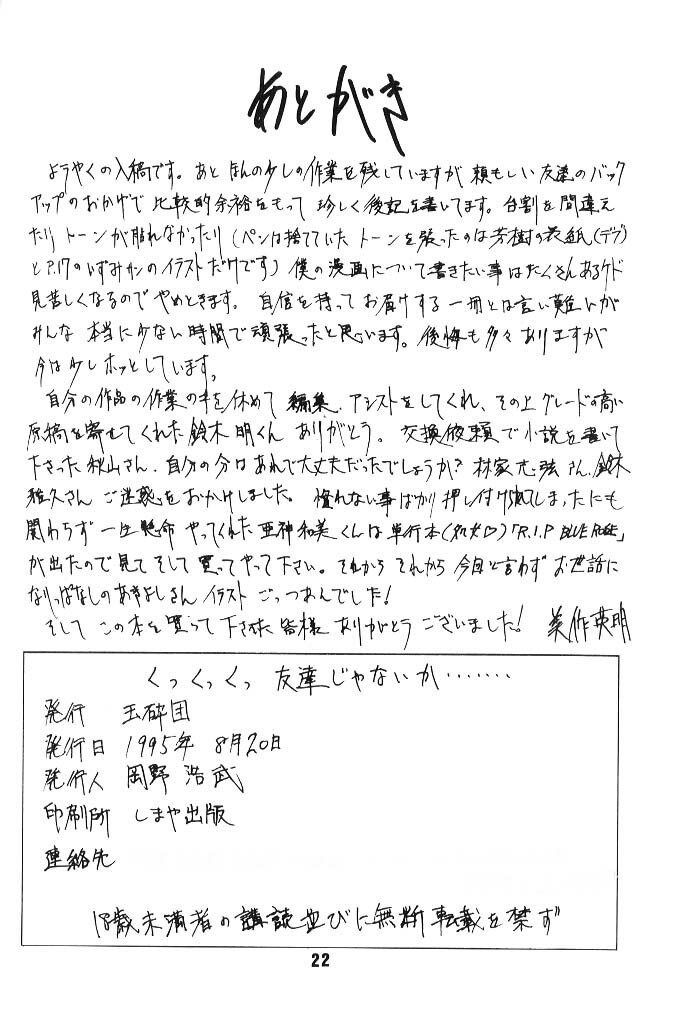 あとがき
ようやくの入稿です。あと ほんの少しの作業を残していますが 頼もしい友達のバック
アップのおかげで 比較的余裕をもって 珍しく後記を書いてます。台割を間違え
たり トーンが貼れなかったり(ペンは捨てていた トーンを張ったのは芳樹の表紙(デブ)
とP.17のいずみかのイラストだけです) 僕の漫画について書きたい事はたくさんあるケド
見苦しくなるので やめときます。 自信を持って お届けする 一冊とは言い難いが
みんな 本当に少ない時間で頑張ったと思います。後悔も多々ありますが
今は少しホッとしています。
自分の作品の作業の手を休めて 編集、アシストをしてくれ、その上グレードの高い
原稿を寄せてくれた鈴木明くん ありがとう。 交換依頼で小説を書いて
下さった秋山さん、自分の分はあれで大丈夫だったでしょうか? 林家志弦さん、鈴木
雅久さん ご迷惑をおかけしました。 慣れない事ばかり押し付けられてしまったにも
関わらず一生懸命 やってくれた 亜神和美くんは単行本(処女♡)「R.I.P BLUE ROSE」
が出たので見て そして 買ってやって下さい。 それから それから 今回と言わず お世話に
なりっぱなしのあきよしさん イラスト ごっつぁんでした!
そして この本を買って下さった 皆様 ありがとうございました! 美作英明
くっくっくっ 友達じゃないか・・・・・・・
発行 玉砕団
発行日 1995年 8月20日
発行人 岡野 浩武
印刷所 しまや出版
連絡先
18歳未満者の購読並びに無断転載を禁ず
22